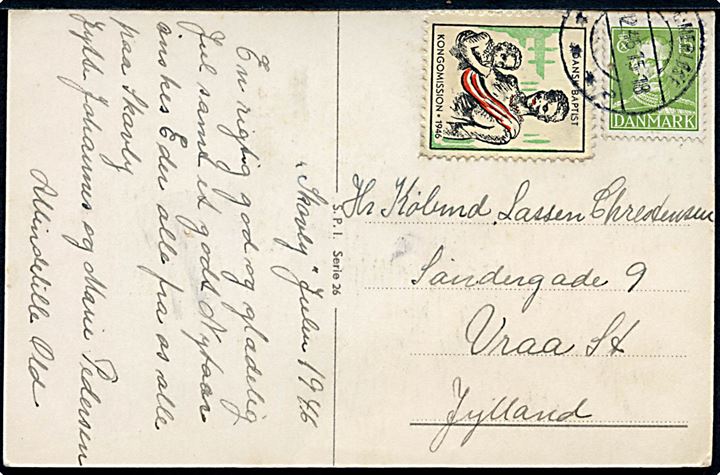 "Skovby" Julen 1946
En rigtig god og glædelig
Jul samt et godt Nytaar
ønskes Eder alle fra os alle
paa Skovby
Johannes og Marie Pedersen
S. P. I. Serie 26
DANSK BAPTIST
KONGOMISSION • 1946
DANMARK
Hr Købmd. Lassen Christensen
Søndergade 9
Vraa St
Jylland